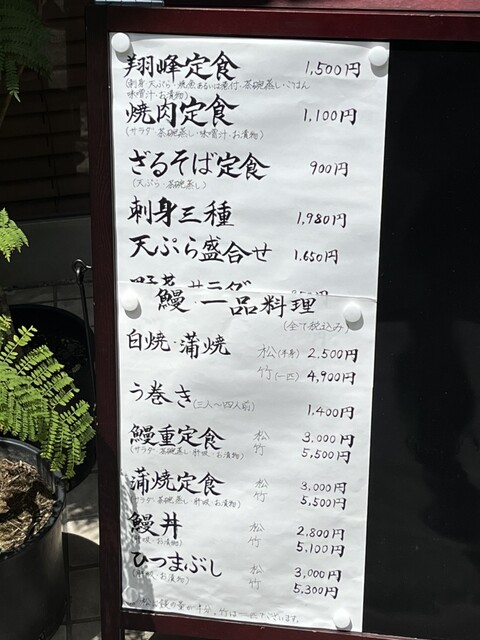 翔峰定食 1,500円
(刺身・天ぷら・焼魚あるいは煮付・茶碗蒸し・ごはん
味噌汁・お漬物)
焼肉定食 1,100円
(サラダ・茶碗蒸し・味噌汁・お漬物)
ざるそば定食 900円
(天ぷら・茶碗蒸し)
刺身三種 1,980円
天ぷら盛合せ 1,650円
野菜サラダ
鰻 一品料理
(全て税込み)
白焼・蒲焼 松(半身) 2,500円
竹(一匹) 4,900円
う巻き(三人〜四人前) 1,400円
鰻重定食 松 3,000円
(サラダ・茶碗蒸し・肝吸・お漬物) 竹 5,500円
蒲焼定食 松 3,000円
(サラダ・茶碗蒸し・肝吸・お漬物) 竹 5,500円
鰻丼 松 2,800円
(肝吸・お漬物) 竹 5,100円
ひつまぶし 松 3,000円
(肝吸・お漬物) 竹 5,300円
松は鰻の量が半分、竹は一匹ございます。